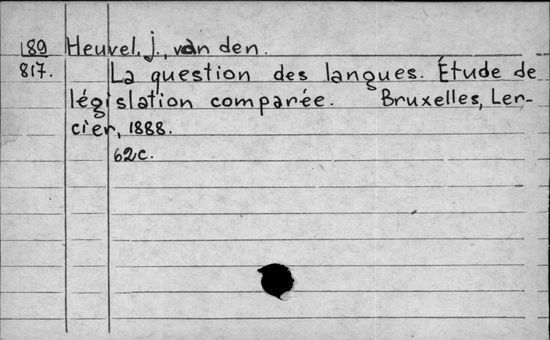 189 Heuvel, J., van den.
817. La question des langues. Étude de
législation comparée. Bruxelles, Ler-
cier, 1888.
62c.